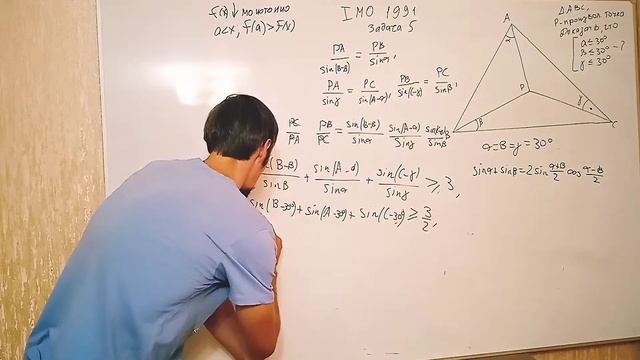 f(x) ↓ монотонно
a<x, f(a)>f(x)
IMO 1991
Задача 5
PA/sin(B-β) = PB/sinα,
PA/sinγ = PC/sin(A-α), PB/sin(C-γ) = PC/sinβ,
PC/PA PB/PC = sin(B-β)/sinα sin(A-α)/sinγ
(B-β)/sinβ + sin(A-α)/sinα + sin(C-γ)/sinγ ≥ 3,
sin(B-30°)+sin(A-30°)+sin(C-30°) ≥ 3/2,
△ABC,
P-произвол. точка
доказать, что
α≤30°
β≤30° -?
γ≤30°
A
α
P
β
γ
C
α=β=γ=30°
sinα+sinβ=2sin α+β/2 cos α-β/2